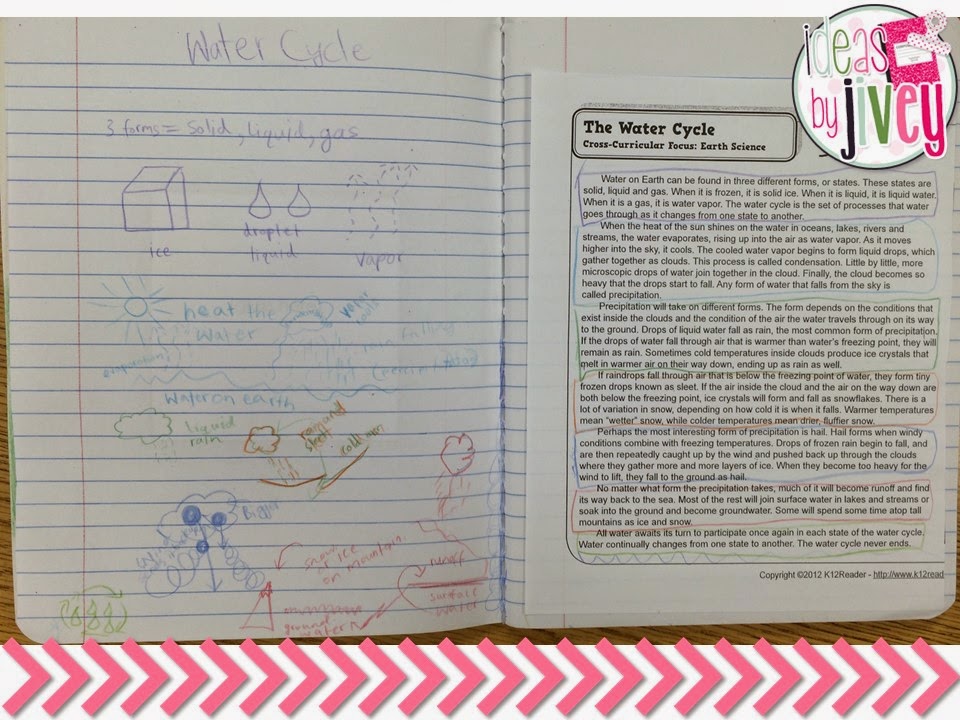 Water Cycle
3 forms = Solid, liquid, gas
ice
droplet
liquid
vapor
heat the
water
water
cools
falling
rain
evaporation
Water on earth
liquid
rain
cold rain
Bigger
snow
ice
on mountain
runoff
surface
water
ground
water
ideas
by jivey
The Water Cycle
Cross-Curricular Focus: Earth Science
Water on Earth can be found in three different forms, or states. These states are
solid, liquid and gas. When it is frozen, it is solid ice. When it is liquid, it is liquid water.
When it is a gas, it is water vapor. The water cycle is the set of processes that water
goes through as it changes from one state to another.
When the heat of the sun shines on the water in oceans, lakes, rivers and
streams, the water evaporates, rising up into the air as water vapor. As it moves
higher into the sky, it cools. The cooled water vapor begins to form liquid drops, which
gather together as clouds. This process is called condensation. Little by little, more
microscopic drops of water join together in the cloud. Finally, the cloud becomes so
heavy that the drops start to fall. Any form of water that falls from the sky is
called precipitation.
Precipitation will take on different forms. The form depends on the conditions that
exist inside the clouds and the condition of the air the water travels through on its way
to the ground. Drops of liquid water fall as rain, the most common form of precipitation.
If the drops of water fall through air that is warmer than water's freezing point, they will
remain as rain. Sometimes cold temperatures inside clouds produce ice crystals that
melt in warmer air on their way down, ending up as rain as well.
If raindrops fall through air that is below the freezing point of water, they form tiny
frozen drops known as sleet. If the air inside the cloud and the air on the way down are
both below the freezing point, ice crystals will form and fall as snowflakes. There is a
lot of variation in snow, depending on how cold it is when it falls. Warmer temperatures
mean "wetter" snow, while colder temperatures mean drier, fluffier snow.
Perhaps the most interesting form of precipitation is hail. Hail forms when windy
conditions combine with freezing temperatures. Drops of frozen rain begin to fall, and
are then repeatedly caught up by the wind and pushed back up through the clouds
where they gather more and more layers of ice. When they become too heavy for the
wind to lift, they fall to the ground as hail.
No matter what form the precipitation takes, much of it will become runoff and find
its way back to the sea. Most of the rest will join surface water in lakes and streams or
soak into the ground and become groundwater. Some will spend some time atop tall
mountains as ice and snow.
All water awaits its turn to participate once again in each state of the water cycle.
Water continually changes from one state to another. The water cycle never ends.
Copyright ©2012 K12Reader - http://www.k12read